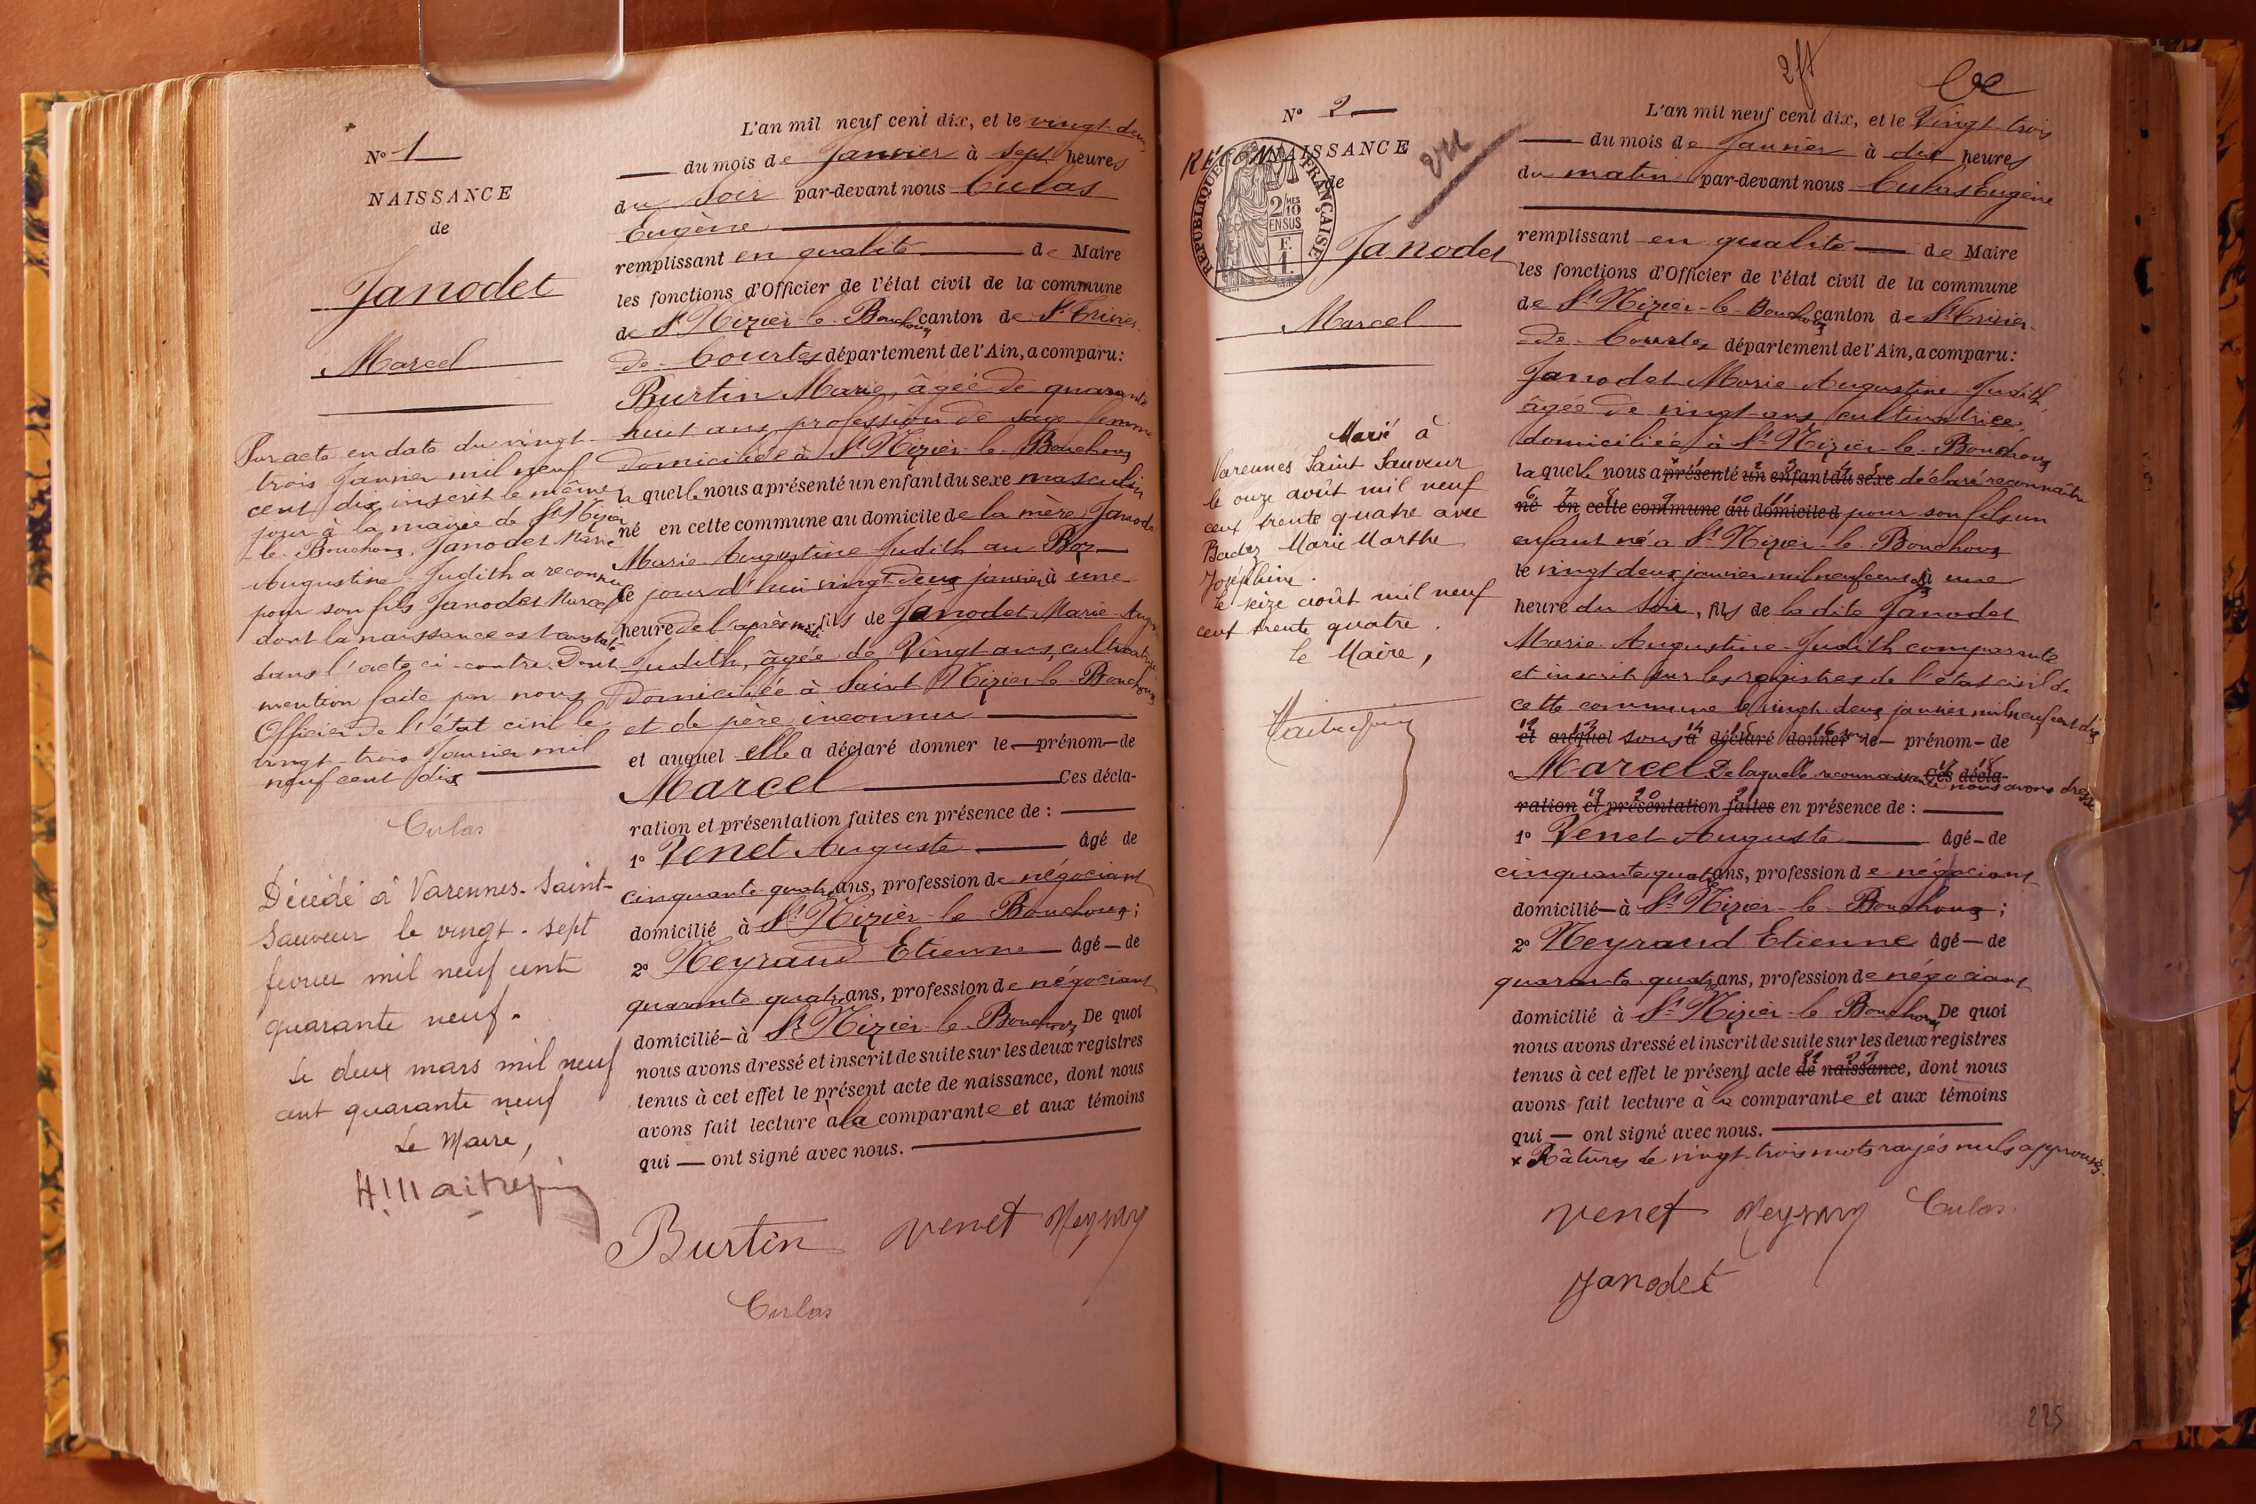 N° 1
NAISSANCE
de
Janodet
Marcel
Par acte en date du vingt
trois Janvier mil neuf
cent dix inscrit le même
jour à la mairie de St Nizier
le Bouchoux, Janodet Marie
Augustine Judith a reconnu
pour son fils Janodet Marcel
dont la naissance est constatée
dans l'acte ci-contre. Dont
mention faite par nous
Officier de l'état civil le
vingt-trois Janvier mil
neuf cent dix
Culas
Décédé à Varennes-Saint-
Sauveur le vingt-sept
février mil neuf cent
quarante neuf.
Le deux mars mil neuf
cent quarante neuf
Le Maire,
L'an mil neuf cent dix, et le vingt-deux
du mois de Janvier à sept heures
du soir par-devant nous Culas
Eugène
remplissant en qualité de Maire
les fonctions d'Officier de l'état civil de la commune
de St Nizier-le-Bouchoux canton de St Trivier-
de-Courtes département de l'Ain, a comparu:
Burtin Marie, âgée de quarante
huit ans, profession de sage-femme
domiciliée à St Nizier-le-Bouchoux
laquelle nous a présenté un enfant du sexe masculin
né en cette commune au domicile de la mère, Janodet
Marie-Augustine Judith au Boz
ce jourd'hui vingt deux janvier à une
heure de l'après midi fils de Janodet Marie-Aug.
Judith, âgée de Vingt ans, cultivatrice
domiciliée à Saint Nizier-le-Bouchoux
et de père inconnu
et auquel elle a déclaré donner le prénom de
Marcel Ces décla-
ration et présentation faites en présence de :
1° Venet Auguste âgé de
cinquante quatre ans, profession de négociant
domicilié à St Nizier-le-Bouchoux;
2° Neyraud Etienne âgé de
quarante quatre ans, profession de négociant
domicilié à St Nizier-le-Bouchoux De quoi
nous avons dressé et inscrit de suite sur les deux registres
tenus à cet effet le présent acte de naissance, dont nous
avons fait lecture à la comparante et aux témoins
qui ont signé avec nous.
Burtin Venet Neyraud
Culas
2ft
N° 2
RECONNAISSANCE
de
274
RÉPUBLIQUE FRANÇAISE
2/10 MES
EN SUS
F.
1.
Janodet
Marcel
Marié à
Varennes Saint Sauveur
le onze août mil neuf
cent trente quatre avec
Badez Marie Marthe
Joséphine.
Le seize août mil neuf
cent trente quatre.
Le Maire,
L'an mil neuf cent dix, et le Vingt-trois
du mois de Janvier à dix heures
du matin par-devant nous Culas Eugène
remplissant en qualité de Maire
les fonctions d'Officier de l'état civil de la commune
de St Nizier-le-Bouchoux canton de St Trivier-
de-Courtes département de l'Ain, a comparu:
Janodet Marie-Augustine-Judith
âgée de vingt ans, cultivatrice,
domiciliée à St Nizier-le-Bouchoux
laquelle nous a présenté un enfant du sexe déclaré reconnaître
né en cette commune au domicile d pour son fils un
enfant né à St Nizier-le-Bouchoux
le vingt deux janvier mil neuf cent dix à une
heure du soir, fils de la dite Janodet
Marie-Augustine-Judith comparante
et inscrit sur les registres de l'état civil de
cette commune le vingt-deux janvier mil neuf cent dix
et auquel sous a déclaré donner le prénom de
Marcel De laquelle reconnaissance nous avons dressé Ces décla-
ration et présentation faites en présence de :
1° Venet Auguste âgé de
cinquante quatre ans, profession de négociant
domicilié à St Nizier-le-Bouchoux;
2° Neyraud Etienne âgé de
quarante quatre ans, profession de négociant
domicilié à St Nizier-le-Bouchoux De quoi
nous avons dressé et inscrit de suite sur les deux registres
tenus à cet effet le présent acte de naissance, dont nous
avons fait lecture à la comparante et aux témoins
qui ont signé avec nous.
x Râtures de vingt-trois mots rayés nuls approuvés.
Venet Neyraud Culas
Janodet
225